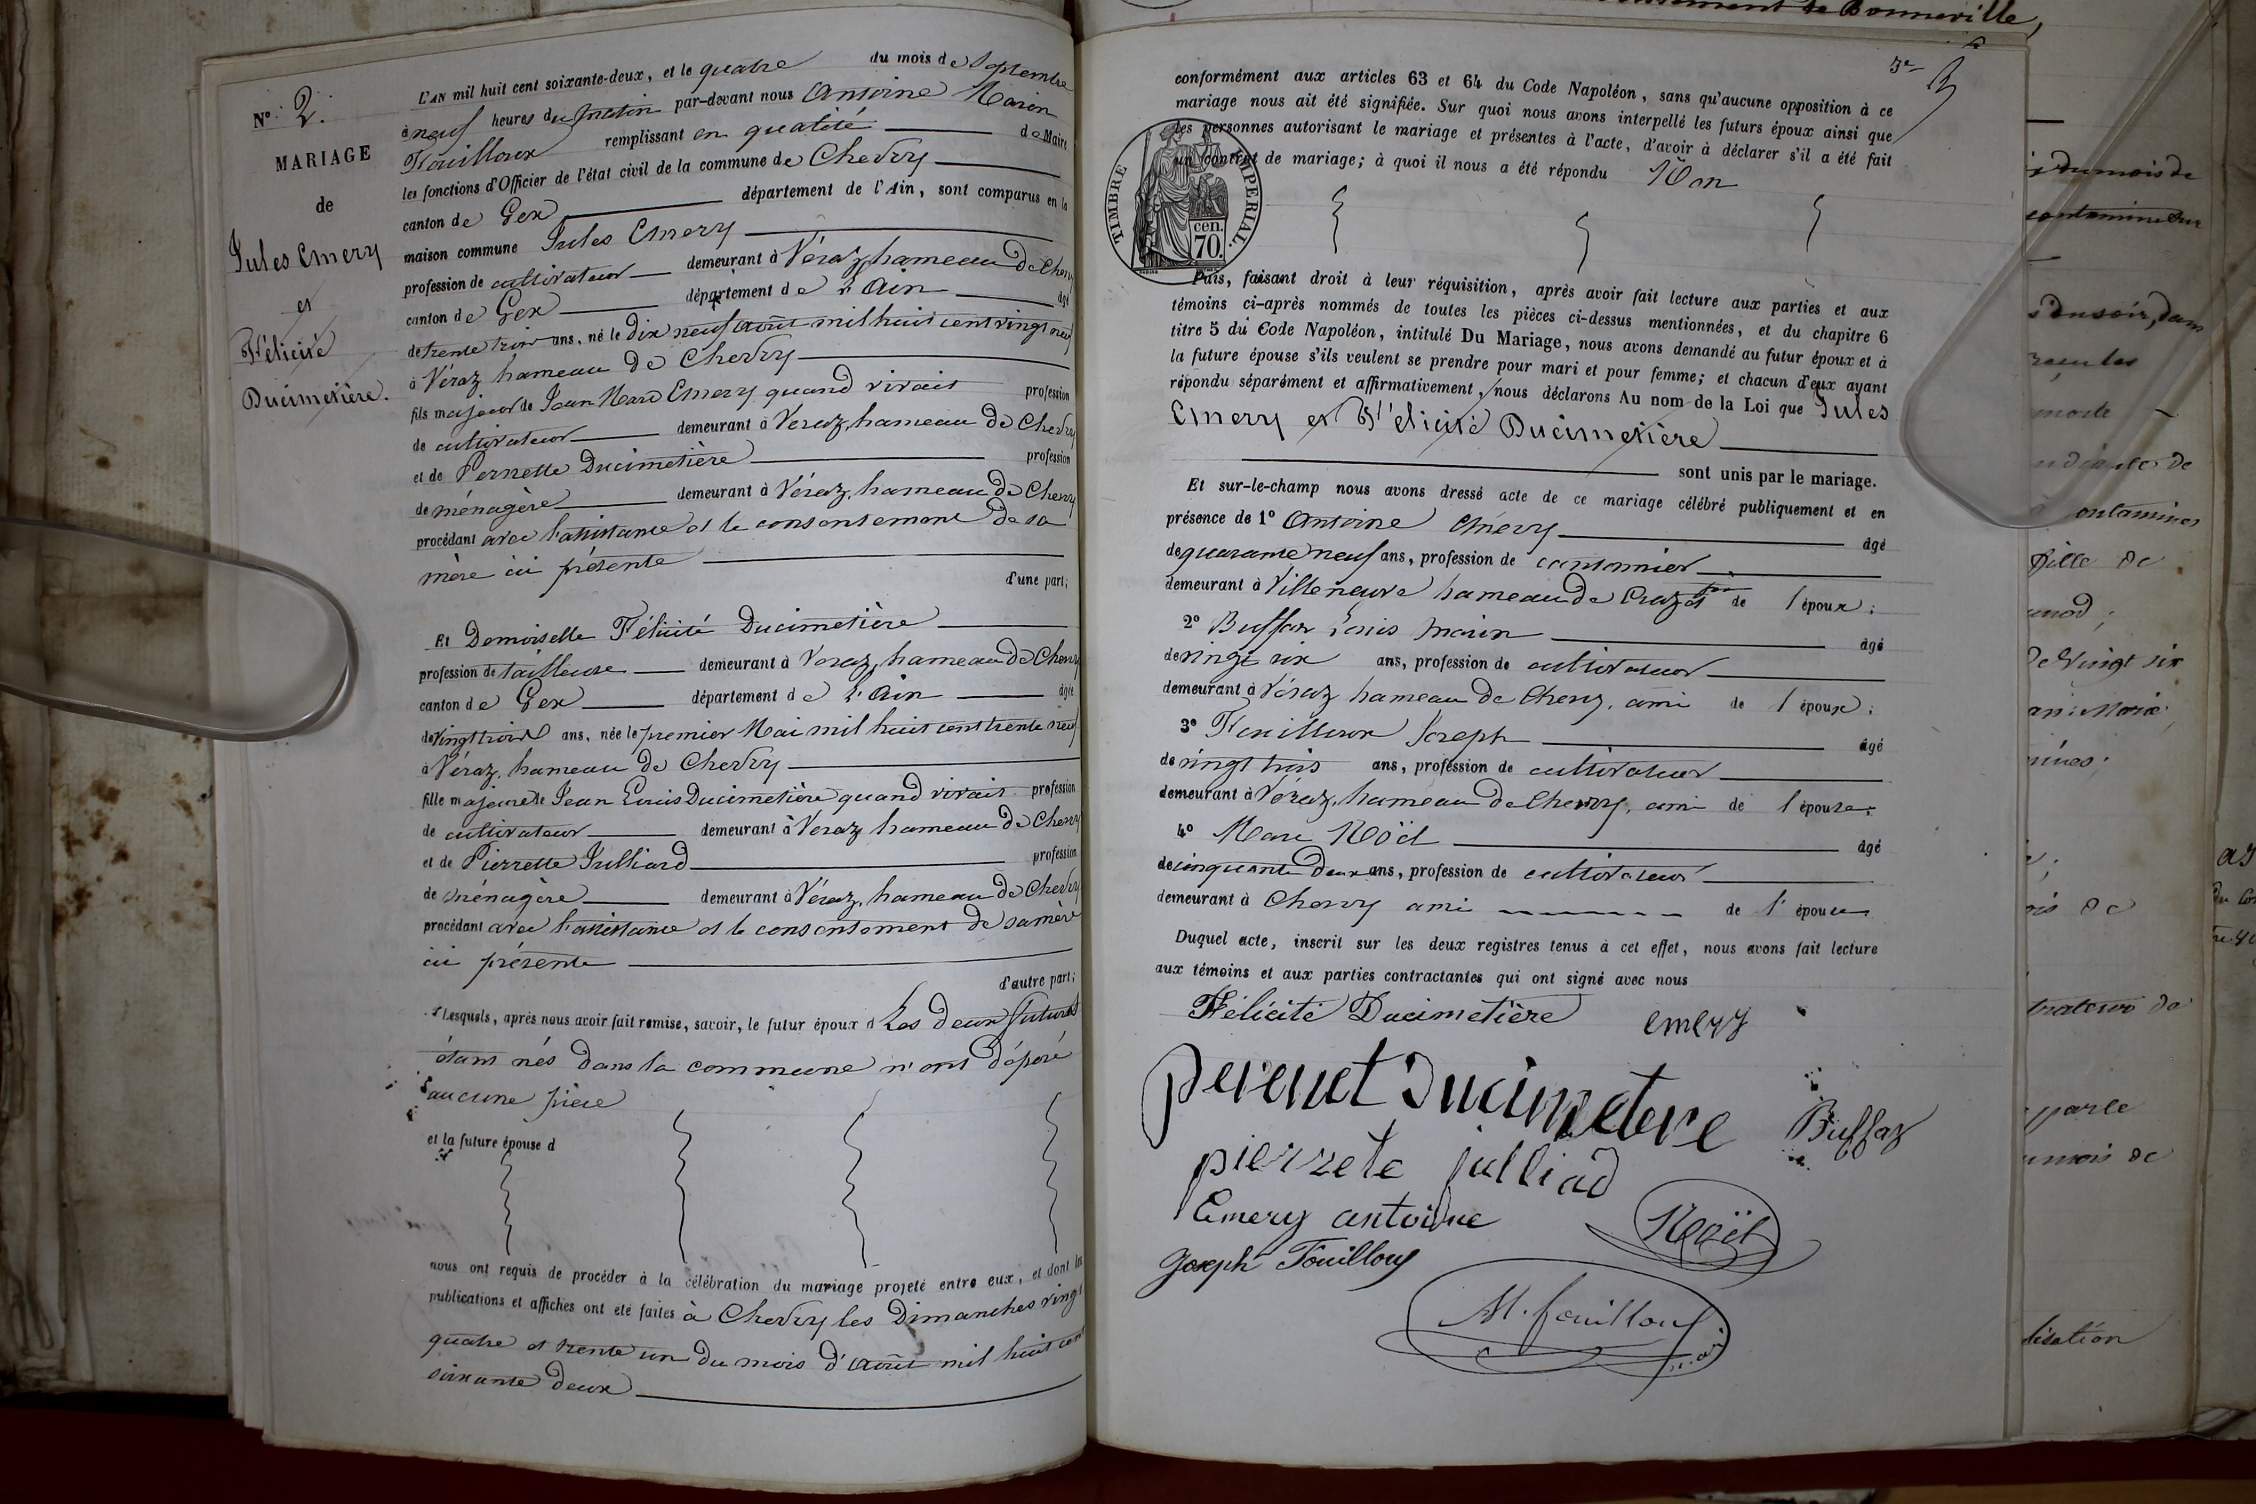 N° 2.
MARIAGE
de
Jules Emery
et
Félicité
Ducimetière.
L'AN mil huit cent soixante-deux, et le quatre du mois de Septembre
à neuf heures du matin par-devant nous Antoine Marin
Fouilloux remplissant en qualité de Maire
les fonctions d'Officier de l'état civil de la commune de Chevry
canton de Gex département de l'Ain, sont comparus en la
maison commune Jules Emery
profession de cultivateur demeurant à Véraz, hameau de Chevry
canton de Gex département de l'Ain âgé
de trente trois ans, né le dix neuf août mil huit cent vingt neuf
à Véraz hameau de Chevry
fils majeur de Jean Marc Emery quand vivait profession
de cultivateur demeurant à Veraz, hameau de Chevry
et de Pernette Ducimetière profession
de ménagère demeurant à Véraz, hameau de Chevry
procédant avec l'assistance et le consentement de sa
mère ici présente
d'une part;
Et Demoiselle Félicité Ducimetière
profession de tailleuse demeurant à Veraz, hameau de Chevry
canton de Gex département de l'Ain âgée
de vingt trois ans, née le premier Mai mil huit cent trente neuf
à Véraz, hameau de Chevry
fille majeure de Jean Louis Ducimetière quand vivait profession
de cultivateur demeurant à Veraz, hameau de Chevry
et de Pierrette Julliard profession
de ménagère demeurant à Véraz, hameau de Chevry
procédant avec l'assistance et le consentement de sa mère
ici présente
d'autre part;
Lesquels, après nous avoir fait remise, savoir, le futur époux d Les deux futurs
étant nés dans la commune n'ont déposé
aucune pièce
et la future épouse d
nous ont requis de procéder à la célébration du mariage projeté entre eux, et dont les
publications et affiches ont été faites à Chevry les Dimanches vingt
quatre et trente un du mois d'Août mil huit cent
soixante deux
3e
conformément aux articles 63 et 64 du Code Napoléon, sans qu'aucune opposition à ce
mariage nous ait été signifiée. Sur quoi nous avons interpellé les futurs époux ainsi que
les personnes autorisant le mariage et présentes à l'acte, d'avoir à déclarer s'il a été fait
un contrat de mariage; à quoi il nous a été répondu Non
TIMBRE IMPERIAL.
cen.
70.
Puis, faisant droit à leur réquisition, après avoir fait lecture aux parties et aux
témoins ci-après nommés de toutes les pièces ci-dessus mentionnées, et du chapitre 6
titre 5 du Code Napoléon, intitulé Du Mariage, nous avons demandé au futur époux et à
la future épouse s'ils veulent se prendre pour mari et pour femme; et chacun d'eux ayant
répondu séparément et affirmativement, nous déclarons Au nom de la Loi que Jules
Emery et Félicité Ducimetière
sont unis par le mariage.
Et sur-le-champ nous avons dressé acte de ce mariage célébré publiquement et en
présence de 1° Antoine Emery âgé
de quarante neuf ans, profession de cantonnier
demeurant à Villeneuve hameau de de l'époux;
2° Buffaz Louis Marin âgé
de vingt six ans, profession de cultivateur
demeurant à Véraz hameau de Chevry, ami de l'époux;
3° Fouilloux Joseph âgé
de vingt trois ans, profession de cultivateur
demeurant à Véraz, hameau de Chevry, ami de l'épouse;
4° Marc Noël âgé
de cinquante deux ans, profession de cultivateur
demeurant à Chevry ami de l'épouse
Duquel acte, inscrit sur les deux registres tenus à cet effet, nous avons fait lecture
aux témoins et aux parties contractantes qui ont signé avec nous
Félicité Ducimetière emery
perenet Ducimetere Buffaz
pierrete julliad
Emery antoine Noël
Joseph Fouilloux
M. fouilloux
de Bonneville,
du mois de
du soir, dans
fille de
de Vingt six
parle
mois de